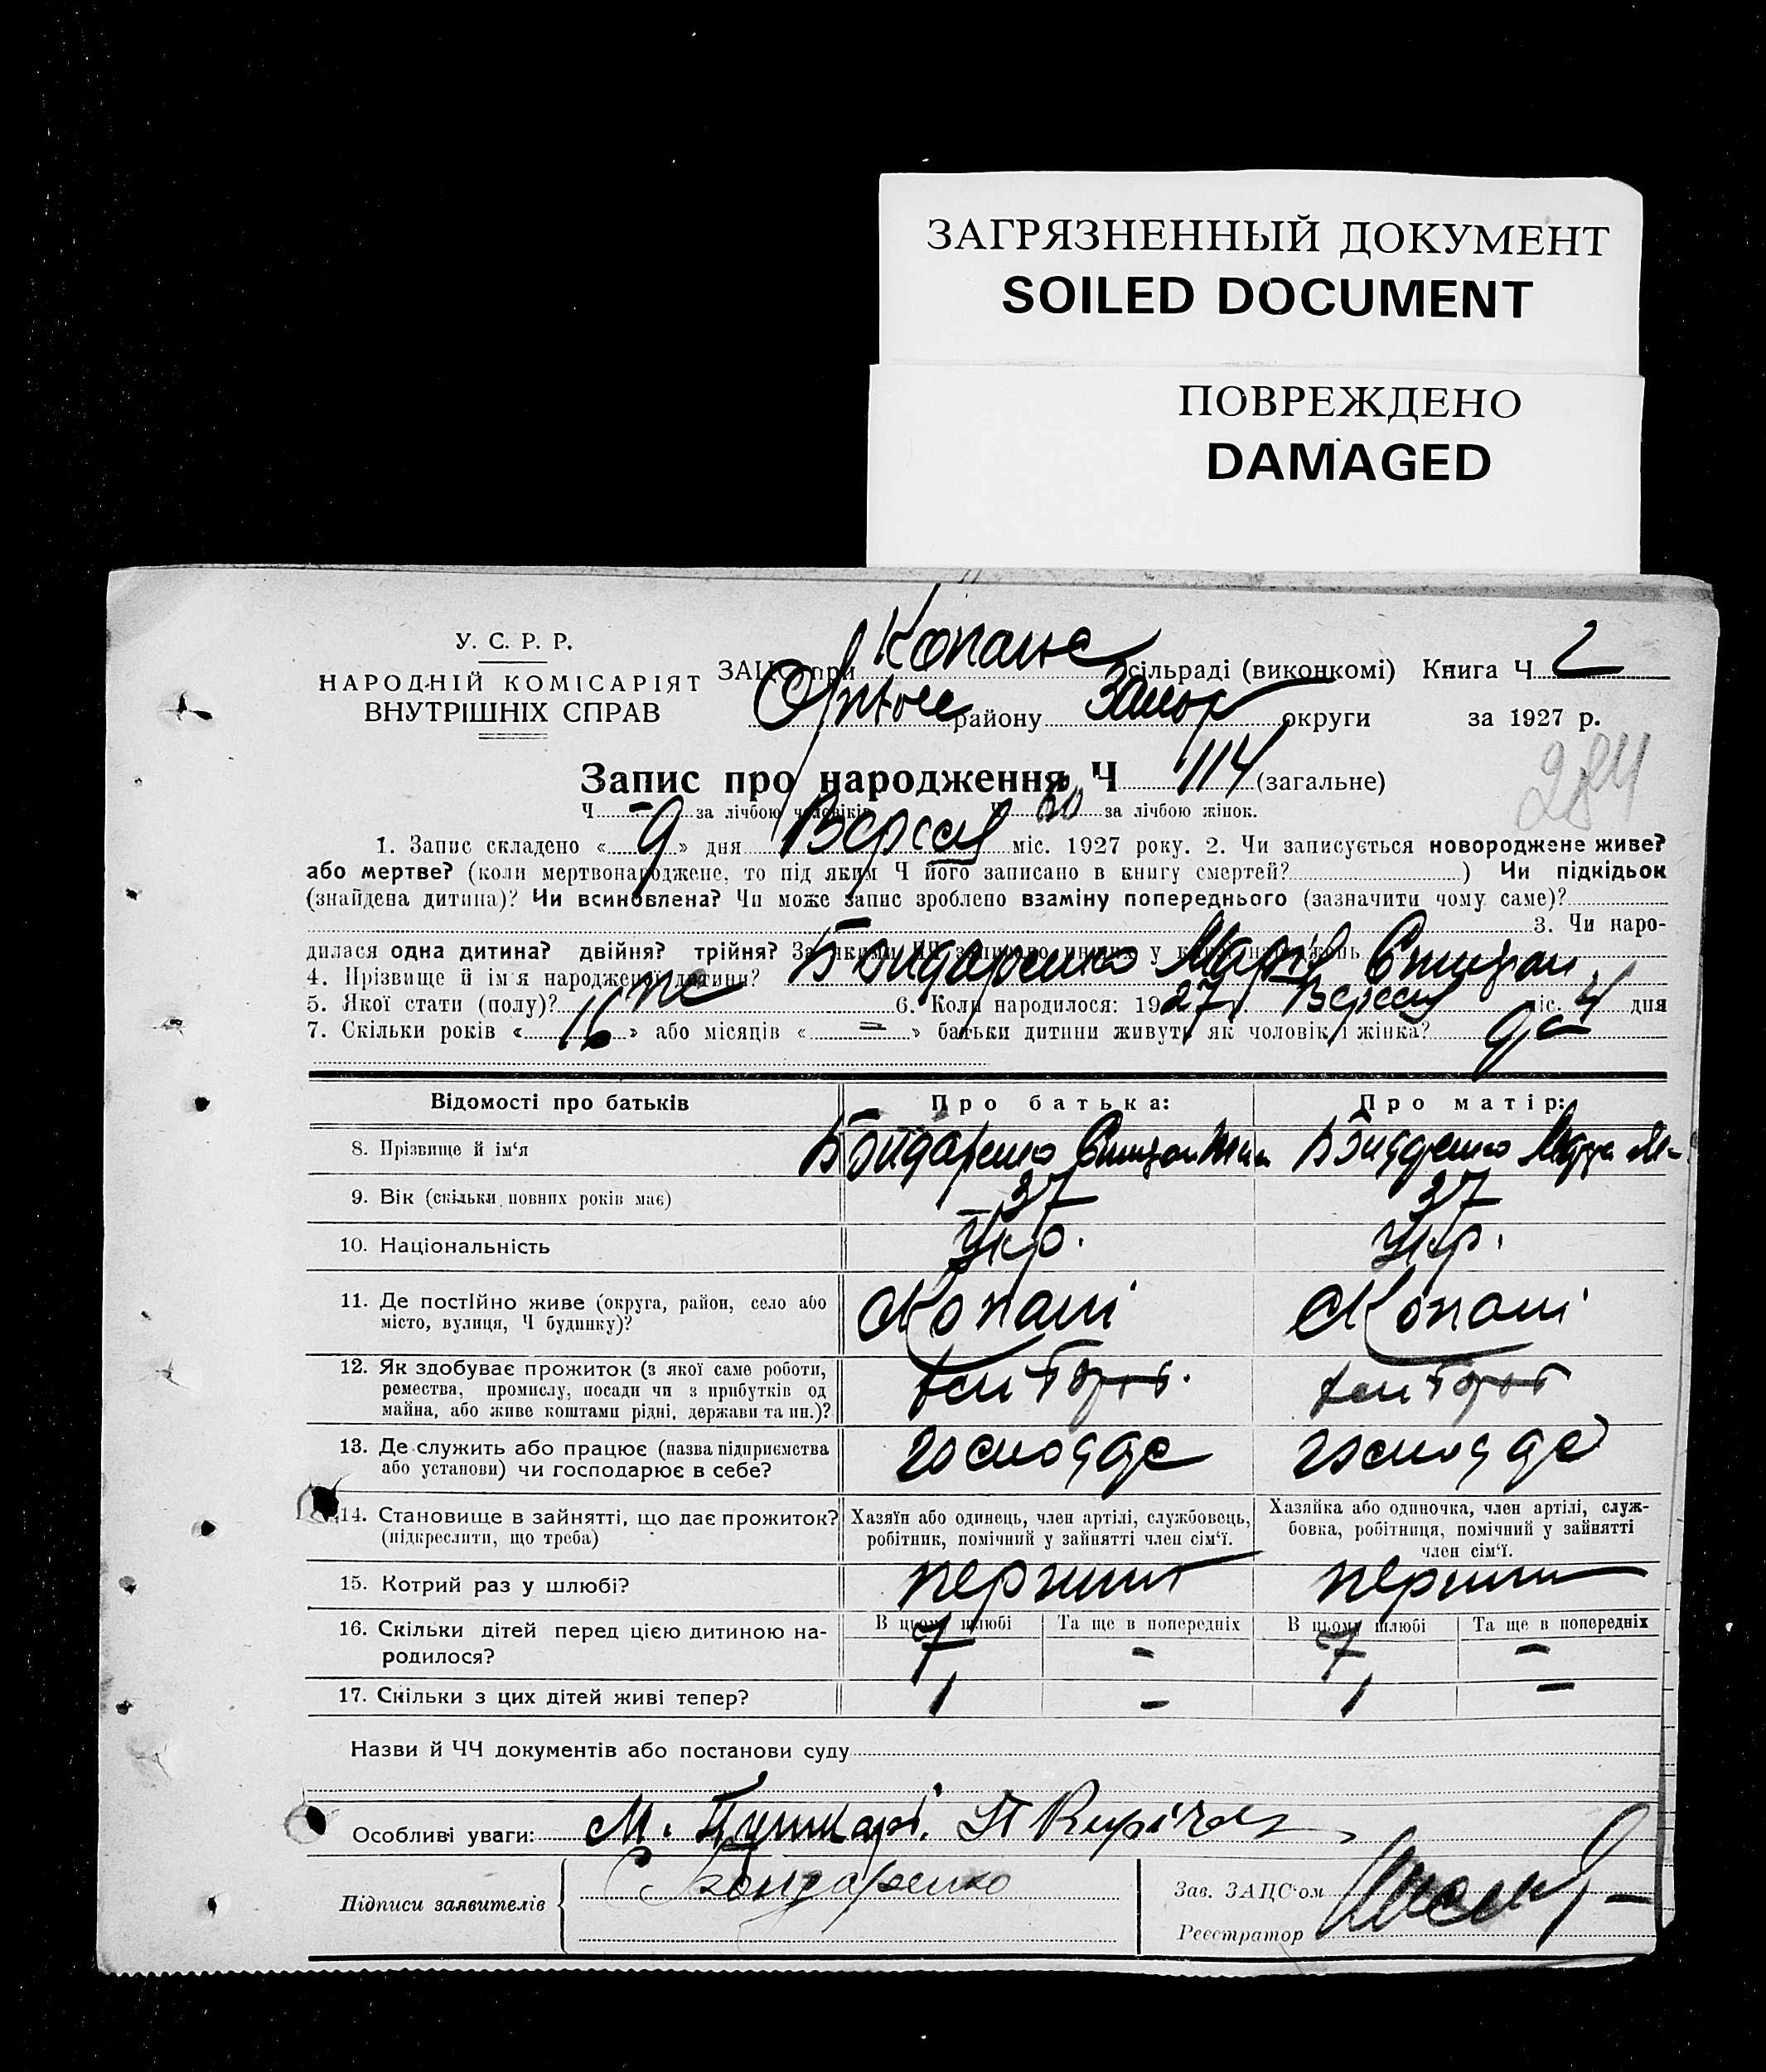 ЗАГРЯЗНЕННЫЙ ДОКУМЕНТ
SOILED DOCUMENT
ПОВРЕЖДЕНО
DAMAGED
У. С. Р. Р.
НАРОДНІЙ КОМІСАРІЯТ
ВНУТРІШНІХ СПРАВ
ЗАЦС при Копане сільраді (виконкомі) Книга Ч 2
району Запор округи за 1927 р.
284
Запис про народження Ч 114 (загальне)
Ч - за лічбою чоловіків Ч 60 за лічбою жінок.
1. Запис складено « 9 » дня Верес міс. 1927 року. 2. Чи записується новороджене живе?
або мертве? (коли мертвонароджене, то під яким Ч його записано в книгу смертей? ) Чи підкідьок
(знайдена дитина)? Чи всиновлена? Чи може запис зроблено взаміну попереднього (зазначити чому саме)?
3. Чи наро-
дилася одна дитина? двійня? трійня? За якими ЧЧ записано инших у книзі народжень
4. Прізвище й ім'я народженої дитини? Бондаренко Марія Степан
5. Якої стати (полу)? же 6. Коли народилося: 1927 Верес міс. 4 дня
7. Скільки років « 16 » або місяців « = » батьки дитини живуть як чоловік і жінка?
Відомості про батьків Про батька: Про матір:
8. Прізвище й ім'я Бондаренко Степан Бондаренко
9. Вік (скільки повних років має) 37 37
10. Національність Укр. Укр.
11. Де постійно живе (округа, район, село або
місто, вулиця, Ч будинку)? с Копані с Копані
12. Як здобуває прожиток (з якої саме роботи,
ремества, промислу, посади чи з прибутків од
майна, або живе коштами рідні, держави та ин.)?
13. Де служить або працює (назва підприємства
або установи) чи господарює в себе?
14. Становище в зайнятті, що дає прожиток?
(підкреслити, що треба)
Хазяїн або одинець, член артілі, службовець,
робітник, помічний у зайнятті член сім'ї.
Хазяйка або одиночка, член артілі, служ-
бовка, робітниця, помічний у зайнятті
член сім'ї.
15. Котрий раз у шлюбі? перший перший
16. Скільки дітей перед цією дитиною на-
родилося?
В цьому шлюбі Та ще в попередніх В цьому шлюбі Та ще в попередніх
7 - 7 -
17. Скільки з цих дітей живі тепер? 1 - 1 -
Назви й ЧЧ документів або постанови суду
Особливі уваги: М.
Підписи заявителів Бондаренко
Зав. ЗАЦС'ом
Реєстратор